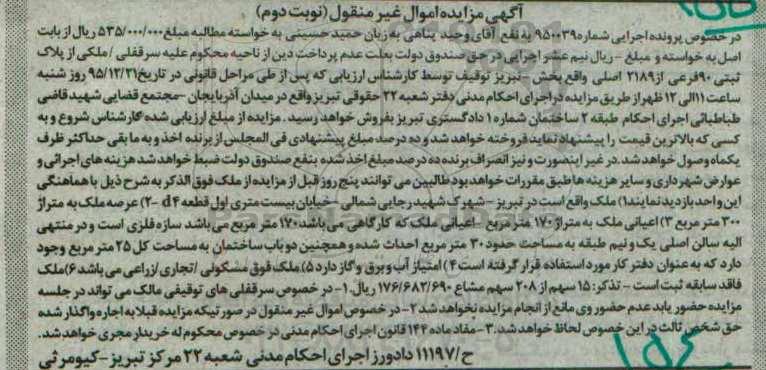 آگهی مزایده اموال غیر منقول (نوبت دوم)
در خصوص پرونده اجرایی شماره ۹۵۰۰۳۹ به نفع آقای وحید پناهی به زیان حمید حسینی به خواسته مطالبه مبلغ ۵۳۵/۰۰۰/۰۰۰ ریال از بابت
اصل به خواسته و مبلغ - ریال نیم عشر اجرایی در حق صندوق دولت بعلت عدم پرداخت دین از ناحیه محکوم علیه سرقفلی / ملکی از پلاک
ثبتی ۹۰ فرعی از ۲۱۸۹ اصلی واقع بخش - تبریز توقیف توسط کارشناس ارزیابی که پس از طی مراحل قانونی در تاریخ ۹۵/۱۲/۲۱ روز شنبه
ساعت ۱۱ الی ۱۲ ظهر از طریق مزایده در اجرای احکام مدنی دفتر شعبه ۲۲ حقوقی تبریز واقع در میدان آذربایجان - مجتمع قضایی شهید قاضی
طباطبائی اجرای احکام طبقه ۲ ساختمان شماره ۱ دادگستری تبریز بفروش خواهد رسید. مزایده از مبلغ ارزیابی شده کارشناس شروع و به
کسی که بالاترین قیمت را پیشنهاد نماید فروخته خواهد شد و ده درصد مبلغ پیشنهادی فی المجلس از برنده اخذ و به ما بقی حداکثر ظرف
یکماه وصول خواهد شد. در غیر اینصورت و نیز انصراف برنده ده درصد مبلغ اخذ شده بنفع صندوق دولت ضبط خواهد شد هزینه های اجرائی و
عوارض شهرداری و سایر هزینه ها طبق مقررات خواهد بود طالبین می توانند پنج روز قبل از مزایده از ملک فوق الذکر به شرح ذیل با هماهنگی
این واحد بازدید نمایند ۱) ملک واقع است در تبریز - شهرک شهید رجایی شمالی - خیابان بیست متری اول قطعه d۴ -۲) عرصه ملک به متراژ
۳۰۰ متر مربع ۳) اعیانی ملک به متراژ ۱۷۰ متر مربع - اعیانی ملک که کارگاهی می باشد ۱۷۰ متر مربع می باشد سازه فلزی است و در منتهی
الیه سالن اصلی یک و نیم طبقه به مساحت حدود ۳۰ متر مربع احداث شده و همچنین دو باب ساختمان به مساحت کل ۲۵ متر مربع وجود
دارد که به عنوان دفتر کار مورد استفاده قرار گرفته است ۴) امتیاز آب و برق و گاز دارد ۵) ملک فوق مسکونی /تجاری/زراعی می باشد ۶) ملک
فاقد سابقه ثبت است - تذکر: ۱۵ سهم از ۲۰۸ سهم مشاع ۱۷۶/۶۸۲/۶۹۰ ریال. ۱- در خصوص سرقفلی های توقیفی مالک می تواند در جلسه
مزایده حضور یابد عدم حضور وی مانع از انجام مزایده نخواهد شد ۲- در خصوص اموال غیر منقول در صورتیکه مزایده قبلا به اجاره واگذار شده
حق شخص ثالث در این خصوص لحاظ خواهد شد. ۳- مفاد ماده ۱۴۴ قانون اجرای احکام مدنی در خصوص محکوم له خریدار مجری خواهد شد.
ح/۱۱۱۹۷ دادورز اجرای احکام مدنی شعبه ۲۲ مرکز تبریز - کیومرثی